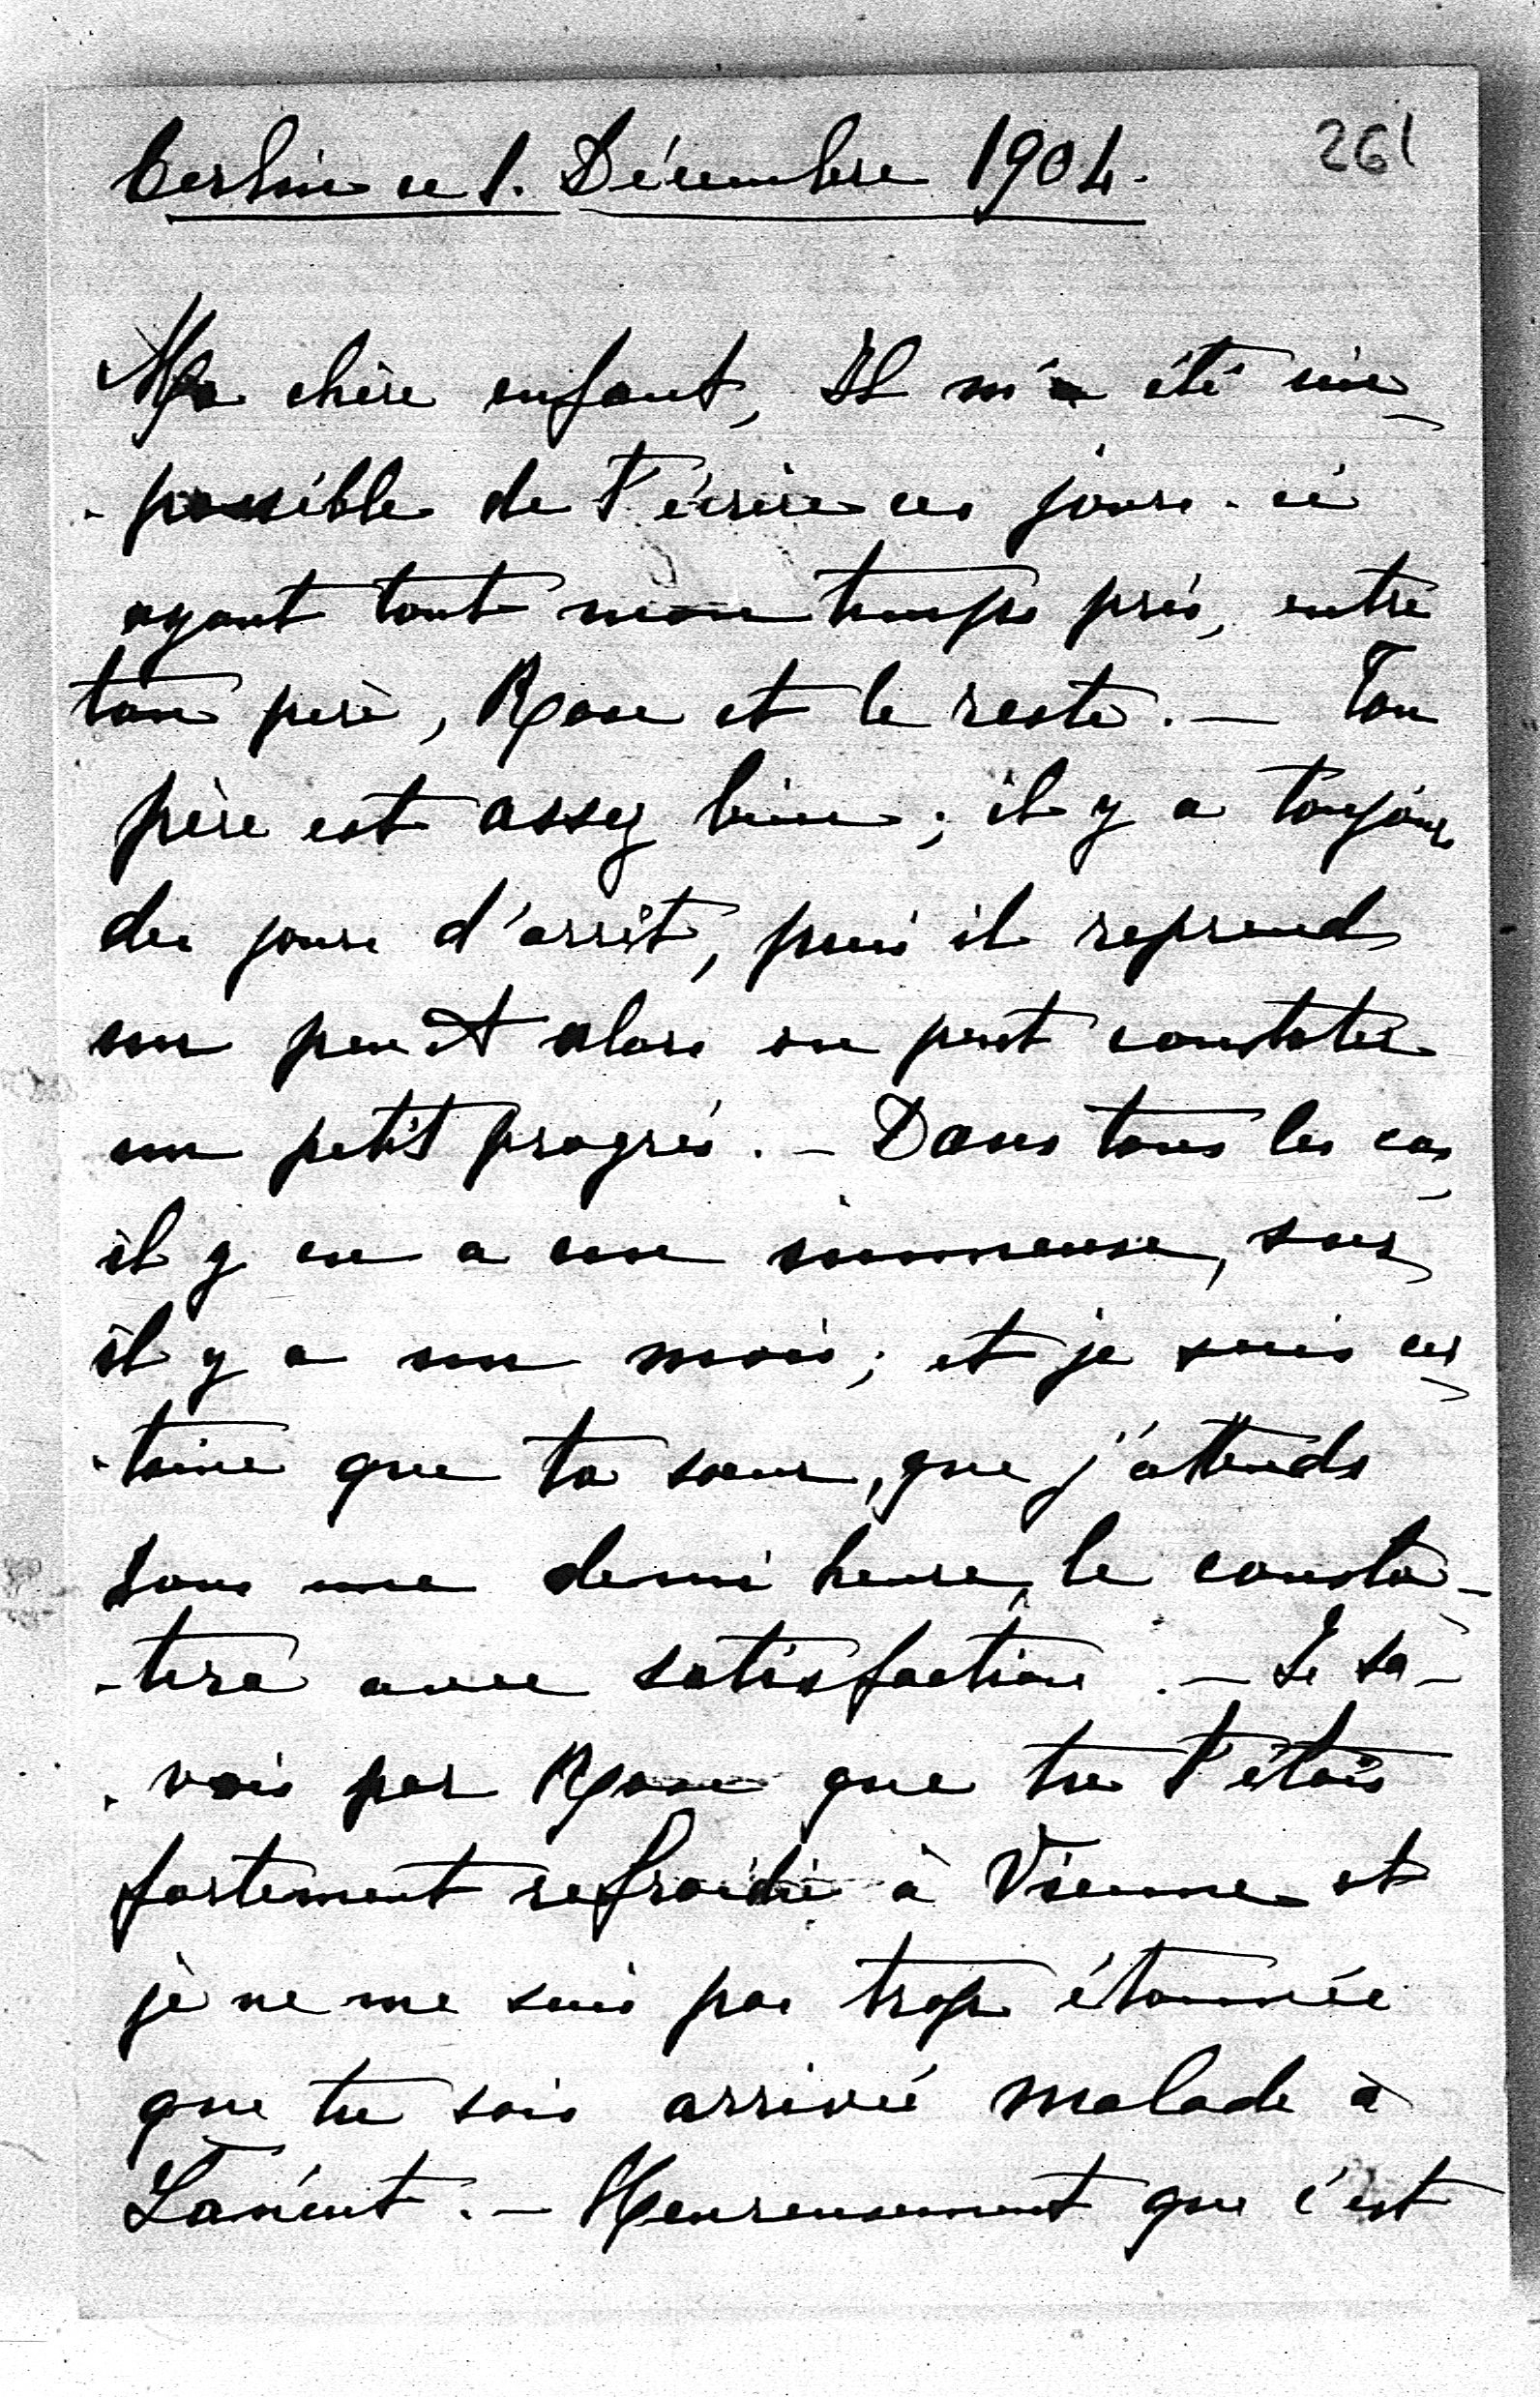 Berlin ce 1. Décembre 1904.
261
Ma chère enfant, Il m'a été im-
-possible de t'écrire ces jours-ci
ayant tout mon temps pris, entre
ton père, Rose et le reste. — Ton
père est assez bien; il y a toujours
des jours d'arrêt, puis il reprend
un peu et alors on peut constater
un petit progrès. — Dans tous les cas
il y en a un immense, sur
il y a un mois; et je suis cer-
-taine que ta sœur, que j'attends
dans une demi heure, le consta-
-tera avec satisfaction. — Je sa-
-vais par Rose que tu t'étais
fortement refroidie à Vienne et
je ne me suis pas trop étonnée
que tu sois arrivée malade à
Lancut. — Heureusement que c'est